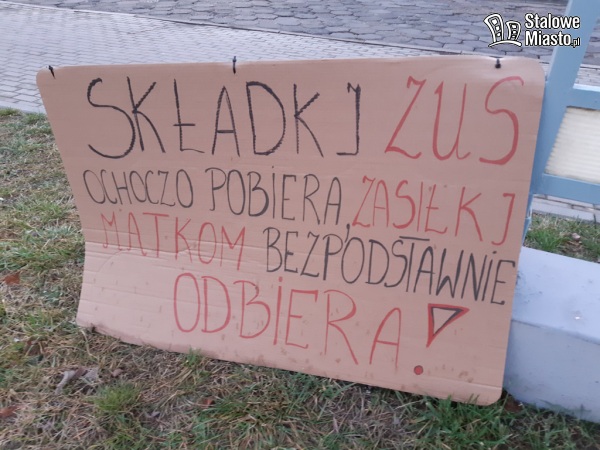 Stalowe
Miasto.pl
SKŁADKI ZUS
OCHOCZO POBIERA, ZASIŁKI
MATKOM BEZPODSTAWNIE
ODBIERA!